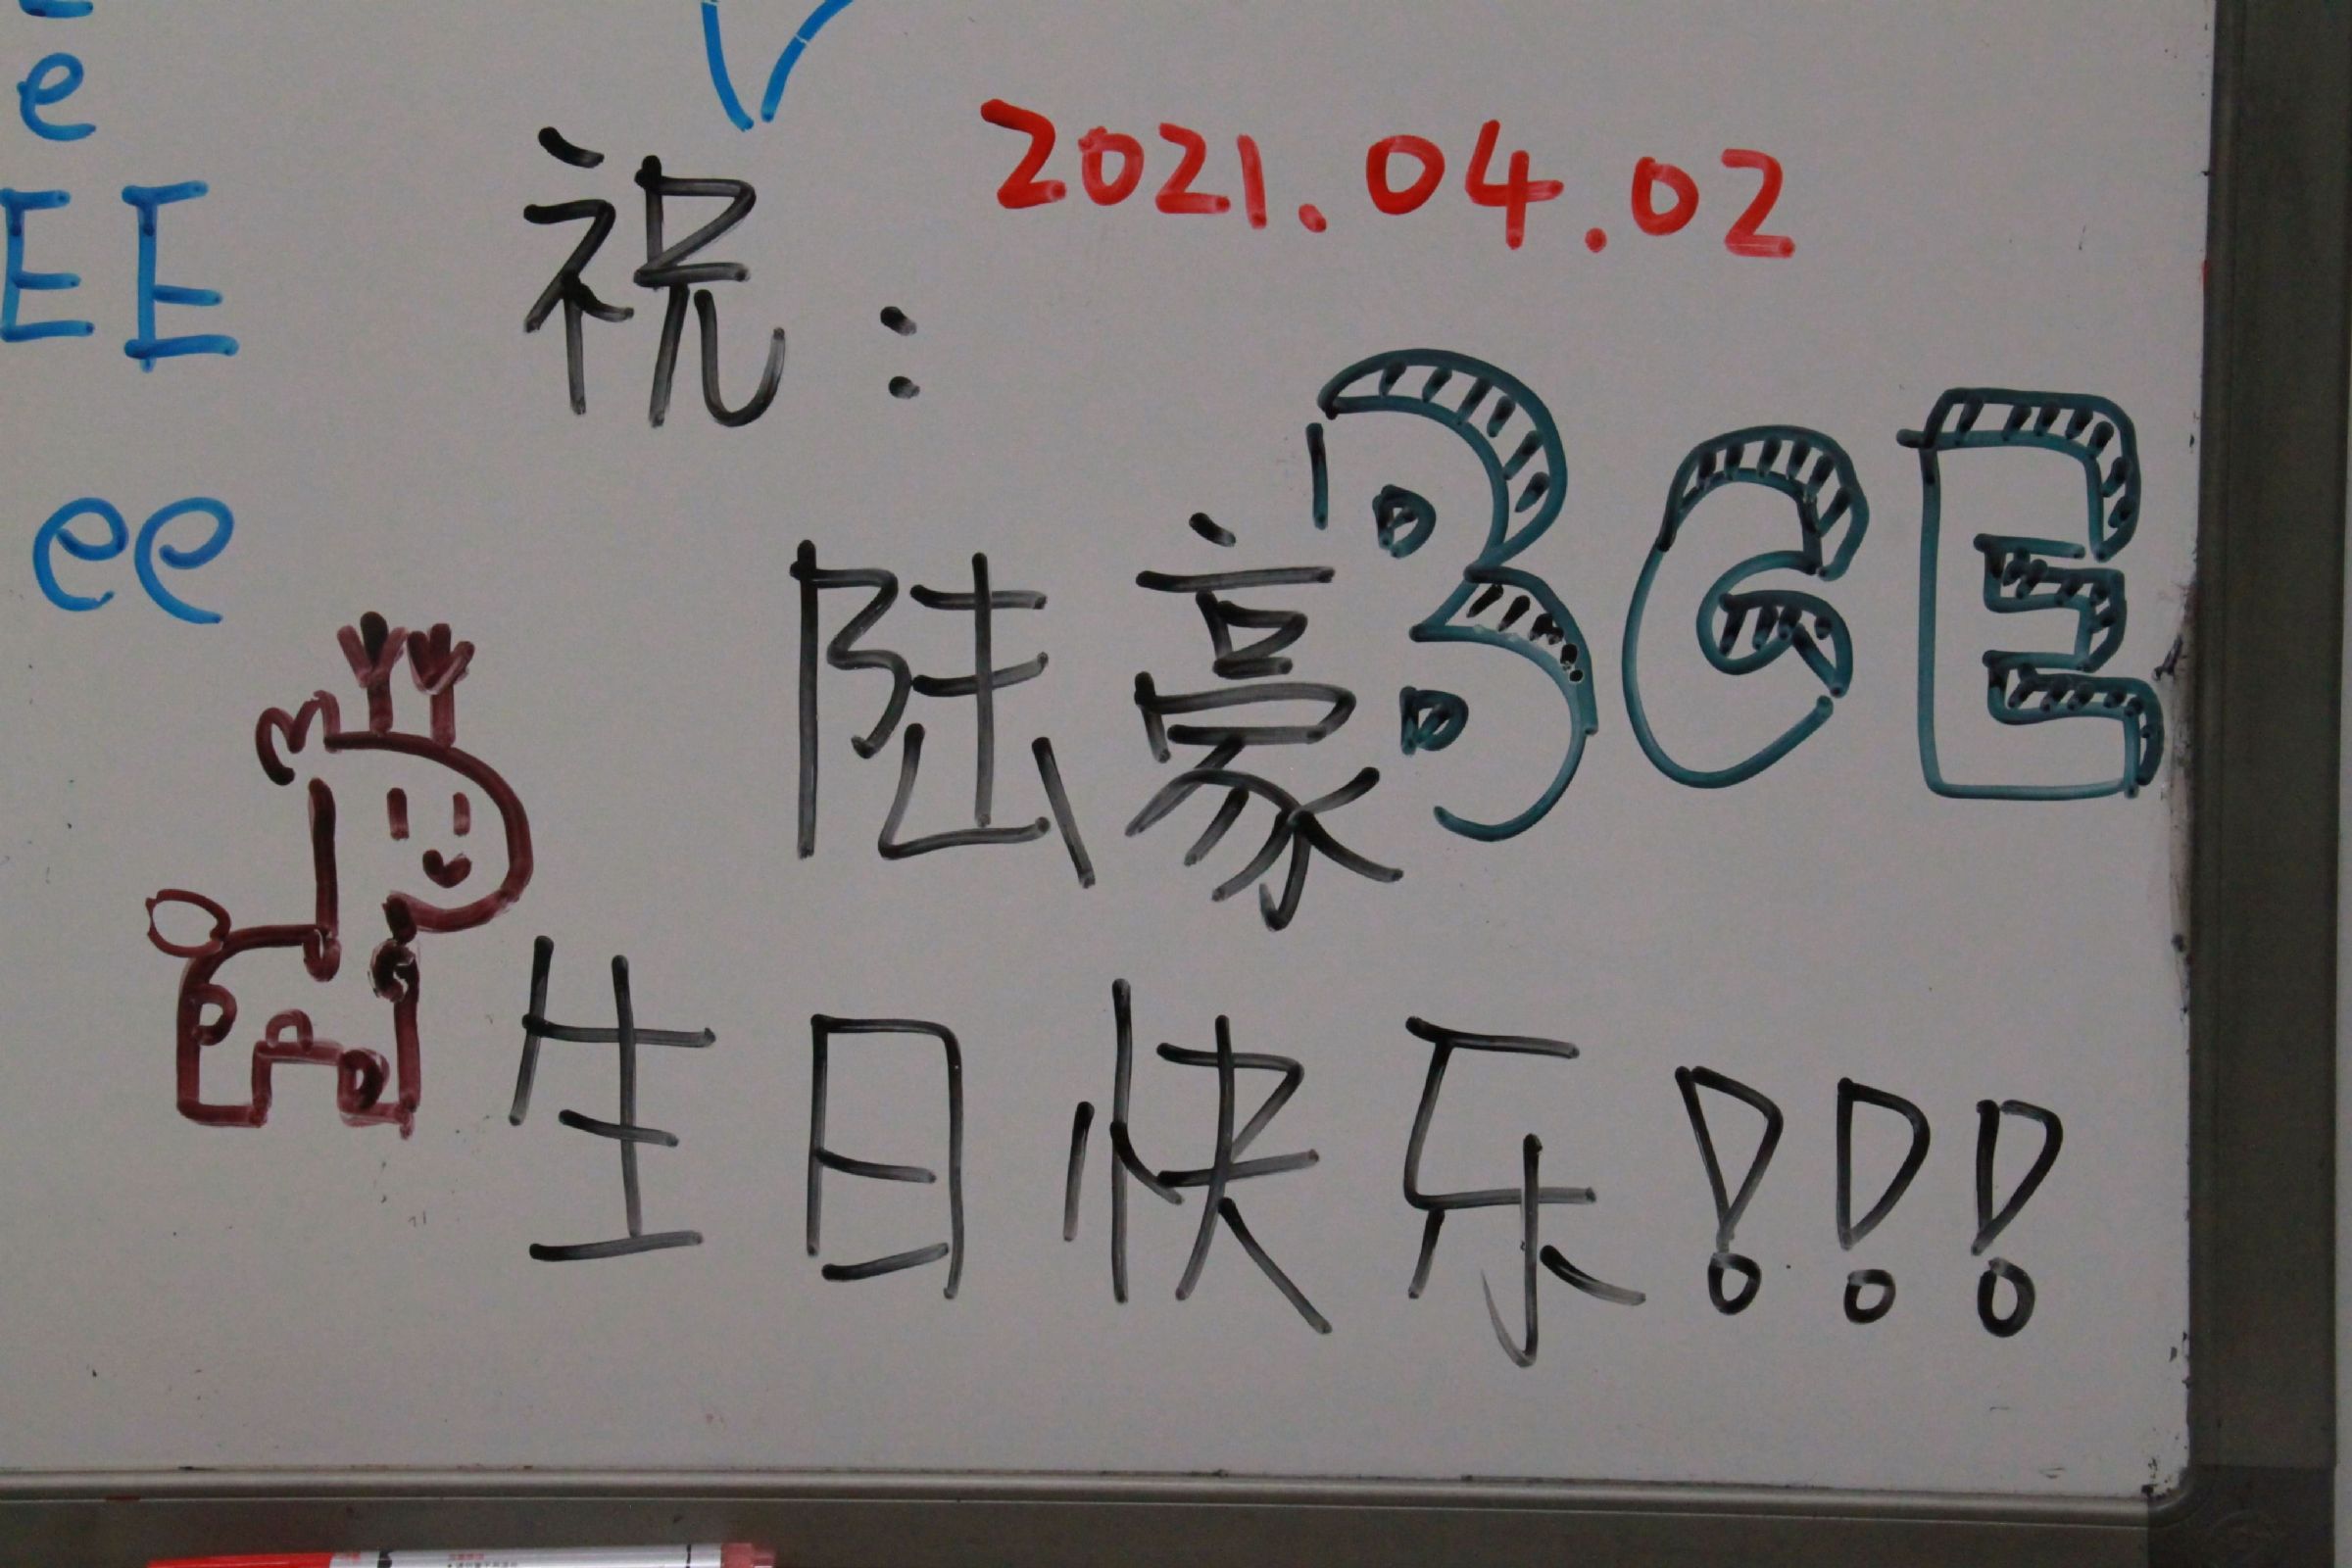 e
EE
ee
2021.04.02
祝:
陆豪
BGE
生日快乐!!!